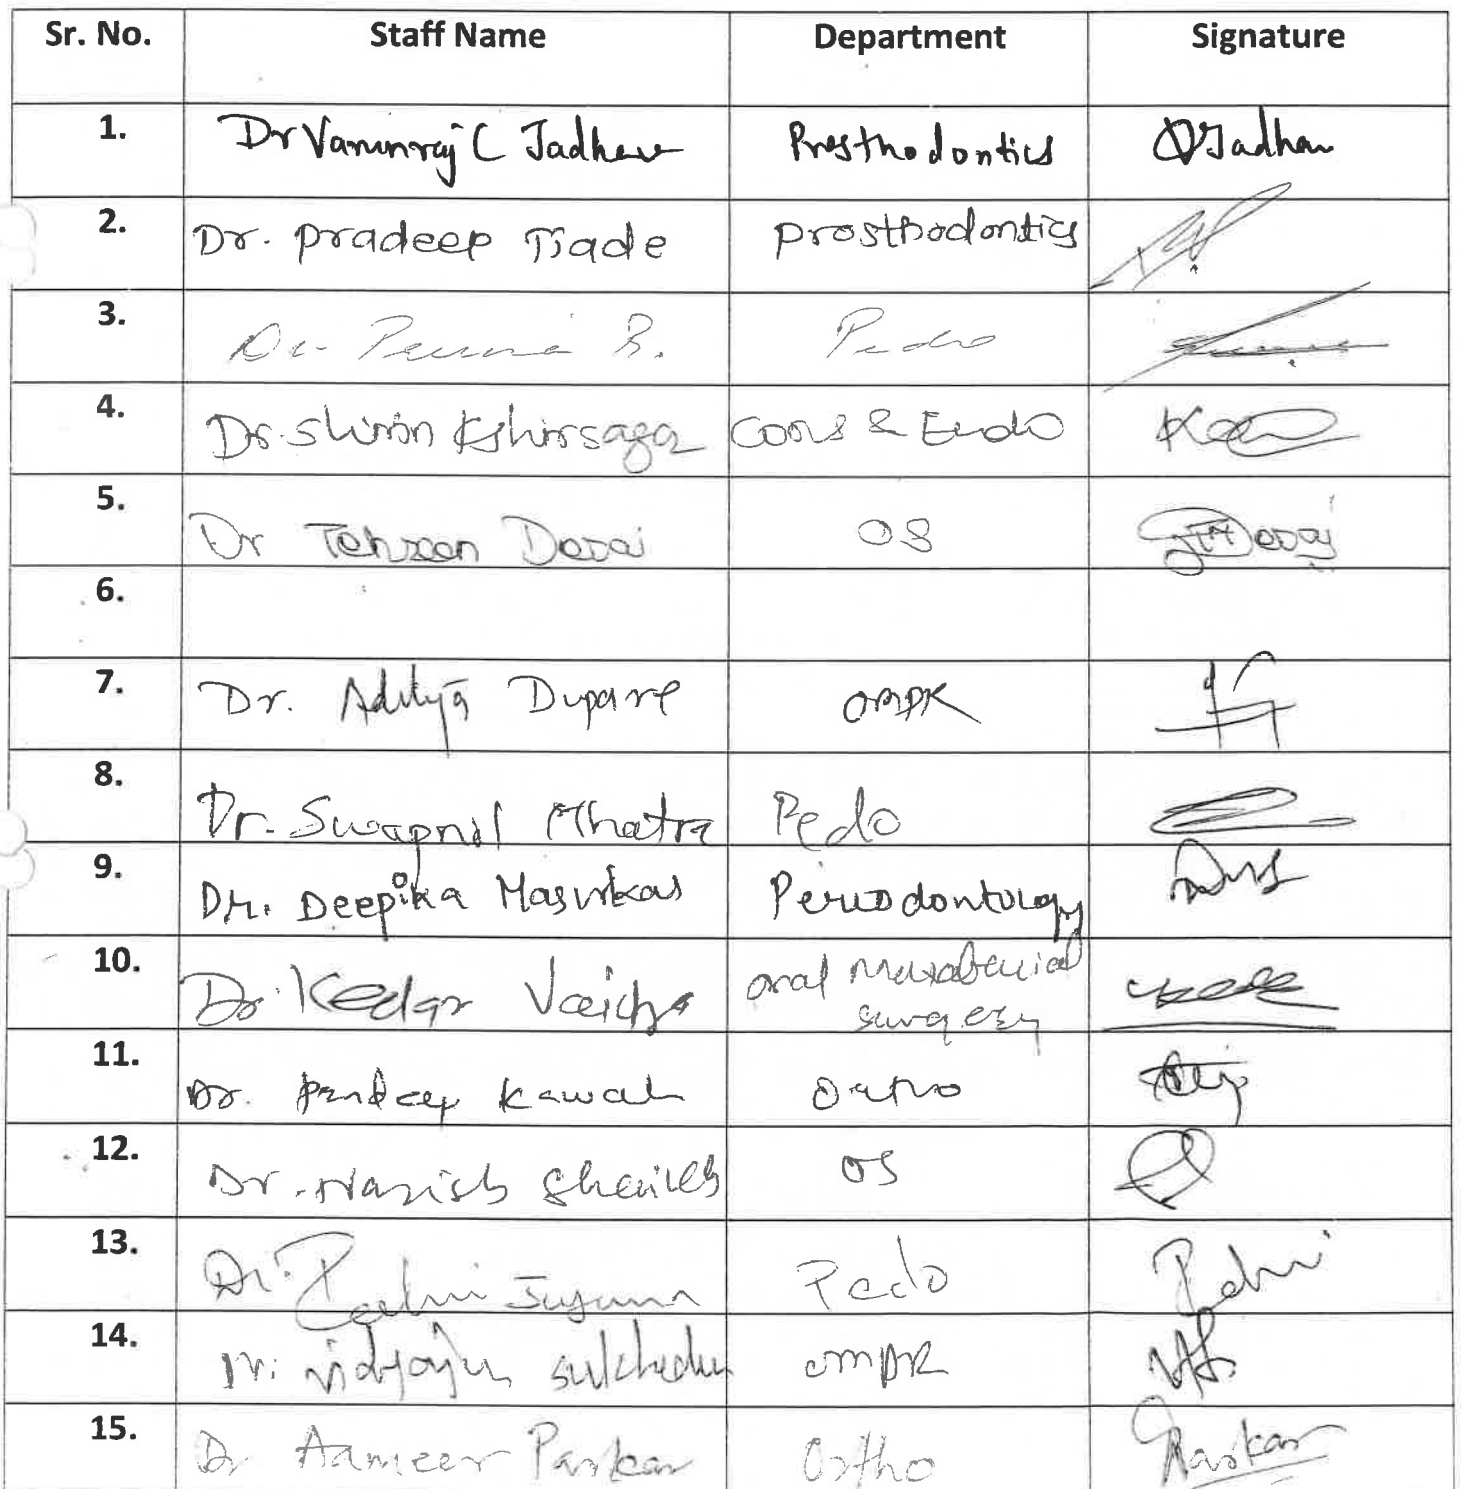 Sr. No. Staff Name Department Signature
1. Dr Vanunraj C Jadhav Prosthodontics Jadhav
2. Dr. Pradeep Prosthodontics
3. Dr. B. Pedo
4. Dr. Kshirsagar Cons & Endo
5. Dr Tehzeen Desai OS Desai
6.
7. Dr. Aditya Dupare OMPR
8. Dr. Swapnil Mhatre Pedo
9. Dr. Deepika Masurkar Periodontology
10. Dr. Kedar Vaidya oral maxofacial
surgery
11. Dr. Kawale Ortho
12. Dr. Nazish Shaikh OS
13. Dr. Pedo
14. Dr. OMPR
15. Dr Aameer Parkar Ortho Parkar